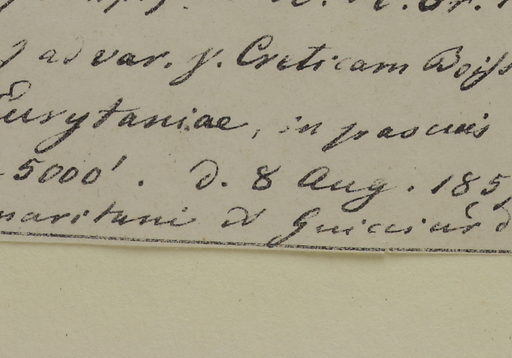 ad var. γ. Creticam Boiss
Eurytaniae, in pascuis
5000'. d. 8 Aug. 185
maritani et Guicciard